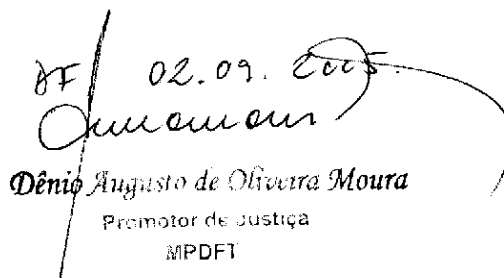 DF 02.09.2005.
Dênio Augusto de Oliveira Moura
Promotor de Justiça
MPDFT